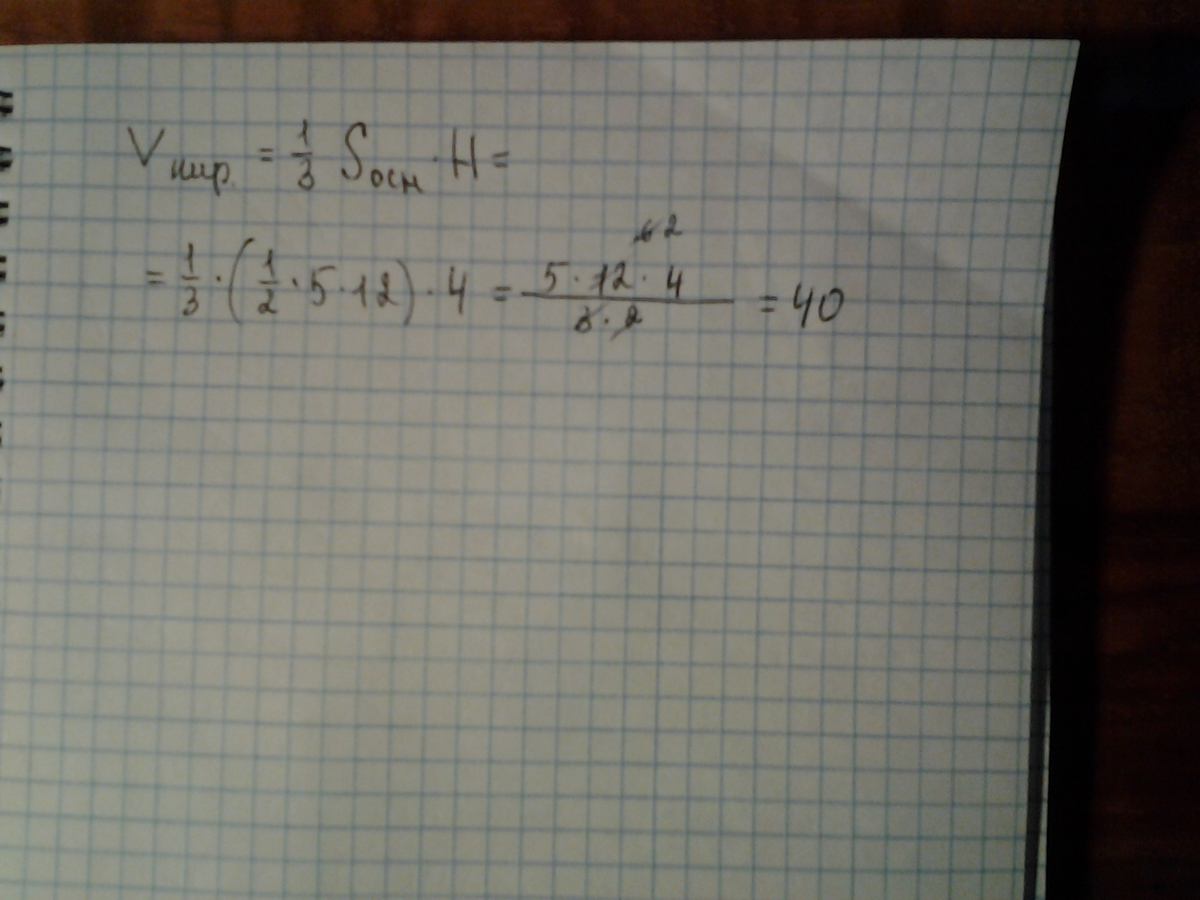 V пир. = 1/3 Sосн · H =
= 1/3 · (1/2 · 5 · 12) · 4 = 5 · 12 · 4 / 3 · 2 = 40
6 2